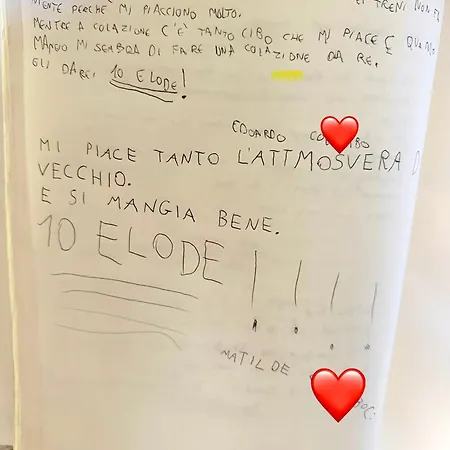 NIENTE PERCHÉ MI PIACCIONO MOLTO. EI TRENI NON
MENTRE A COLAZIONE C'È TANTO CIBO CHE MI PIACE E QUANDO
MANGIO MI SEMBRA DI FARE UNA COLAZIONE DA RE.
GLI DAREI 10 E LODE!
EDOARDO
MI PIACE TANTO L'ATTMOSVERA D
VECCHIO.
E SI MANGIA BENE.
10 E LODE !!!!
MATILDE